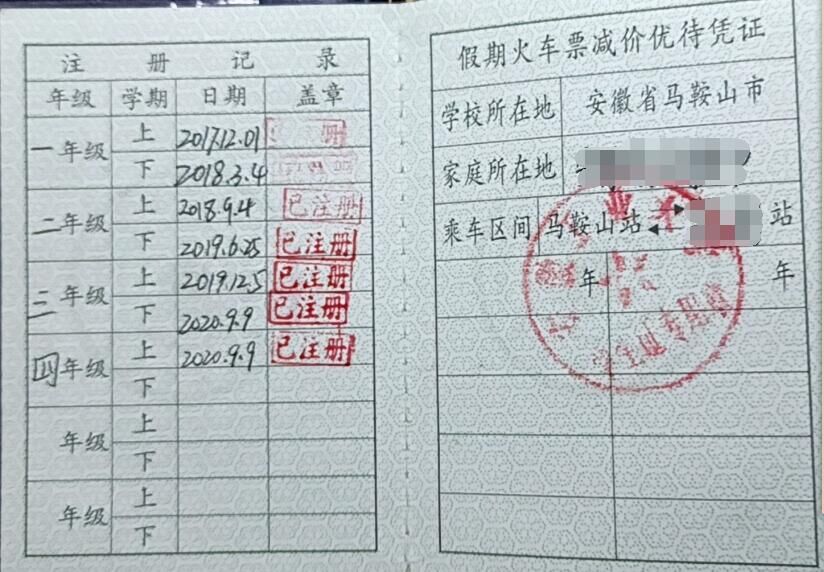 注 册 记 录
年级 学期 日期 盖章
一年级 上 2017.12.01 册
下 2018.3.4
二年级 上 2018.9.4 已注册
下 2019.6.25 已注册
三年级 上 2019.12.5 已注册
下 2020.9.9 已注册
四年级 上 2020.9.9 已注册
下
年级 上
下
年级 上
下
假期火车票减价优待凭证
学校所在地 安徽省马鞍山市
家庭所在地
乘车区间 马鞍山站 站
年 年